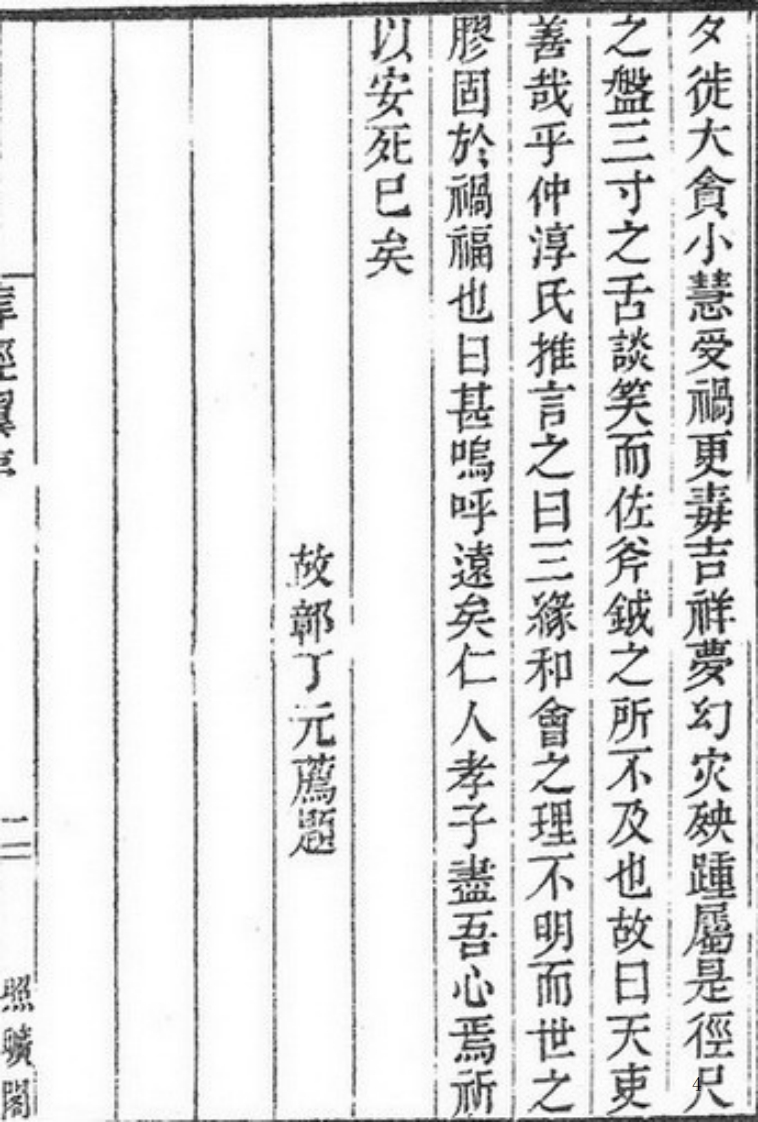 夕徙大貪小慧受禍更毒吉祥夢幻灾殃踵屬是徑尺
之盤三寸之舌談笑而佐斧鉞之所不及也故曰天吏
善哉乎仲淳氏推言之曰三緣和會之理不明而世之
膠固於禍福也日甚嗚呼遠矣仁人孝子盡吾心焉祈
以安死巳矣
故鄣丁元薦題
葬經翼序
二
照曠閣
4